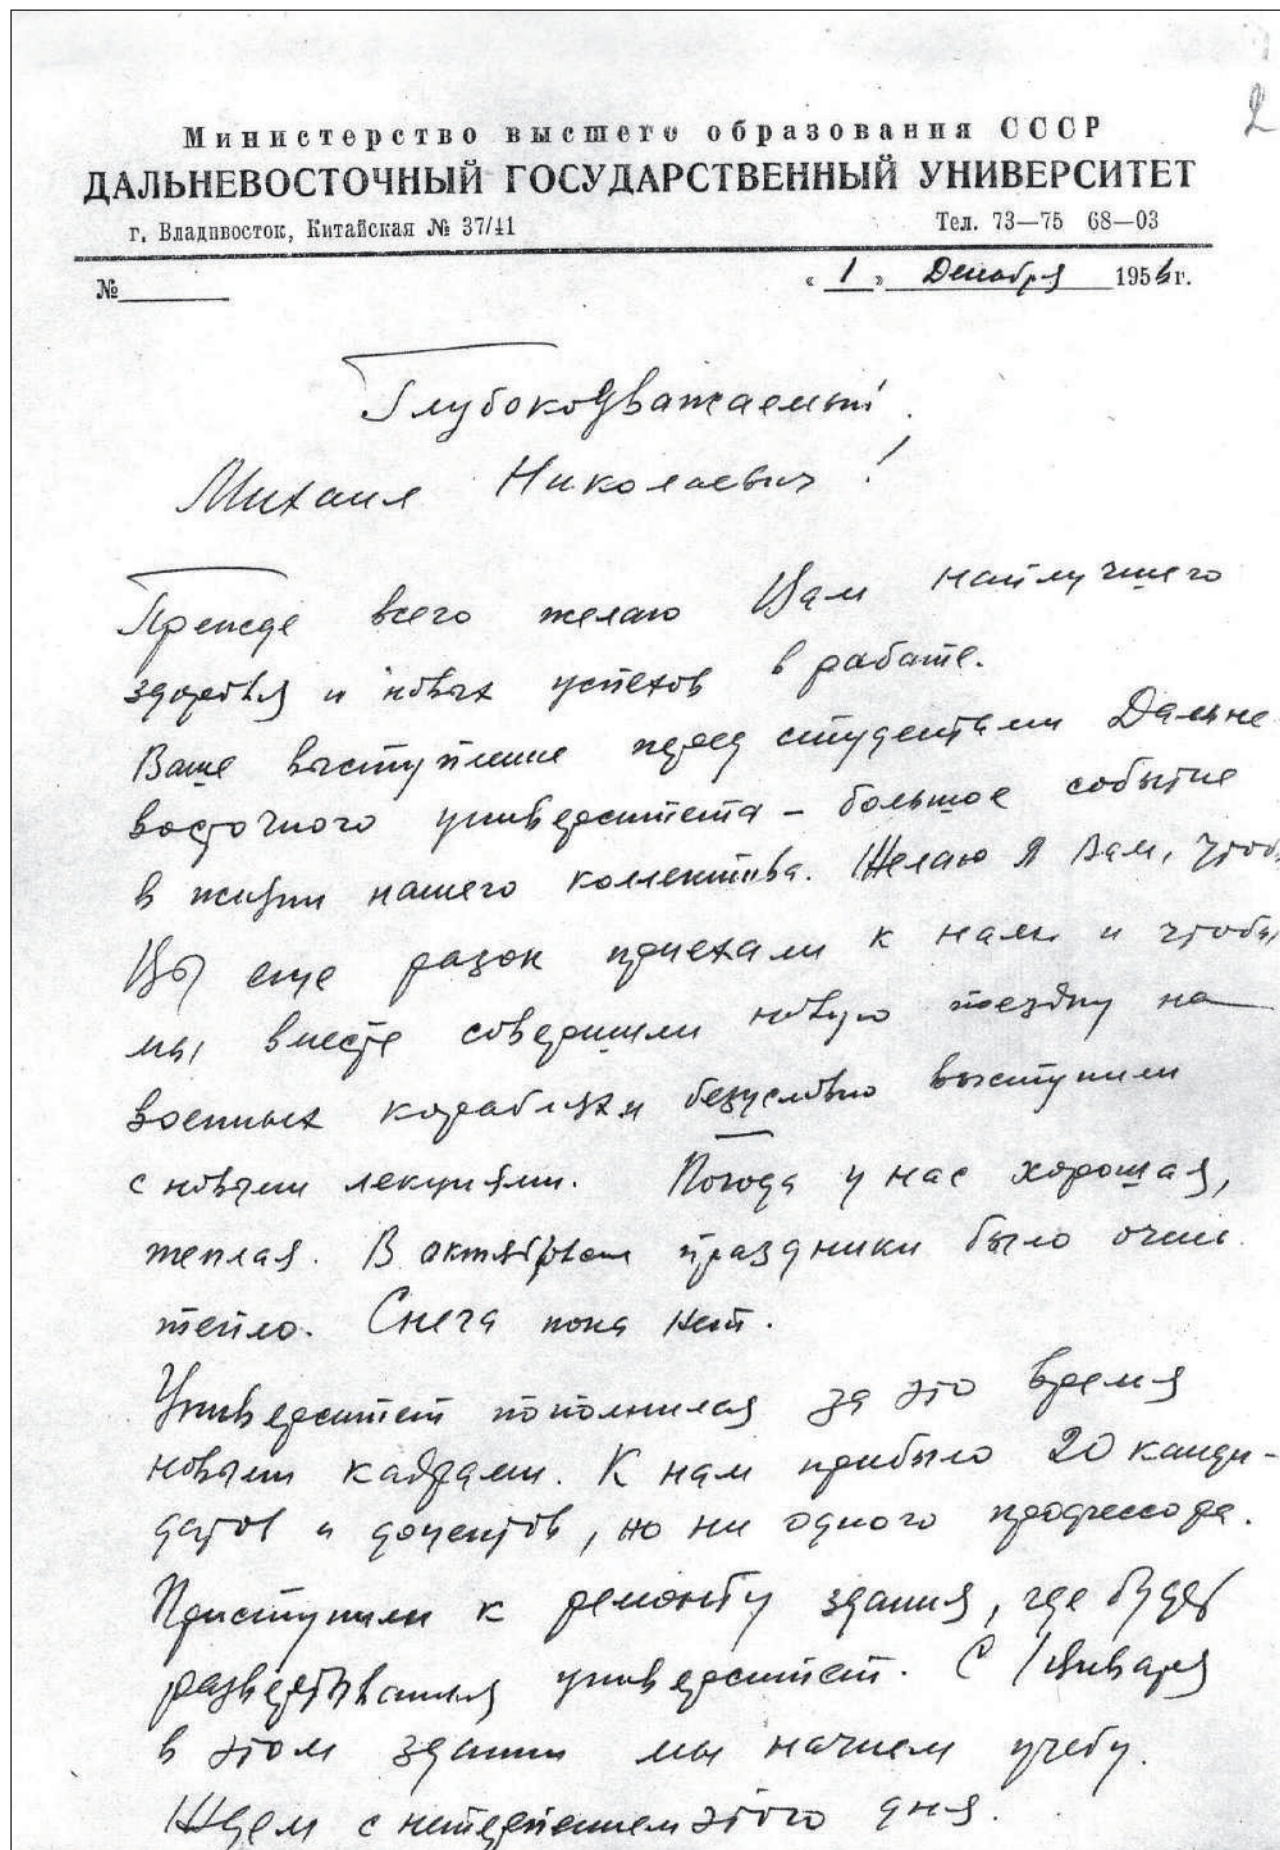 2
Министерство высшего образования СССР
ДАЛЬНЕВОСТОЧНЫЙ ГОСУДАРСТВЕННЫЙ УНИВЕРСИТЕТ
г. Владивосток, Китайская № 37/41 Тел. 73—75 68—03
№ « 1 » Декабря 1956 г.
Глубокоуважаемый
Михаил Николаевич!
Прежде всего желаю Вам наилучшего
здоровья и новых успехов в работе.
Ваше выступление перед студентами Дальне-
восточного университета – большое событие
в жизни нашего коллектива. Желаю я Вам, чтобы
Вы еще разок приехали к нам и чтобы
мы вместе совершили новую поездку на
военных кораблях и безусловно выступили
с новыми лекциями. Погода у нас хорошая,
теплая. В октябрьские праздники было очень
тепло. Снега пока нет.
Университет пополнился за это время
новыми кадрами. К нам прибыло 20 канди-
датов и доцентов, но ни одного профессора.
Приступили к ремонту здания, где будет
развертываться университет. С 1 января
в этом здании мы начнем учебу.
Ждем с нетерпением этого дня.